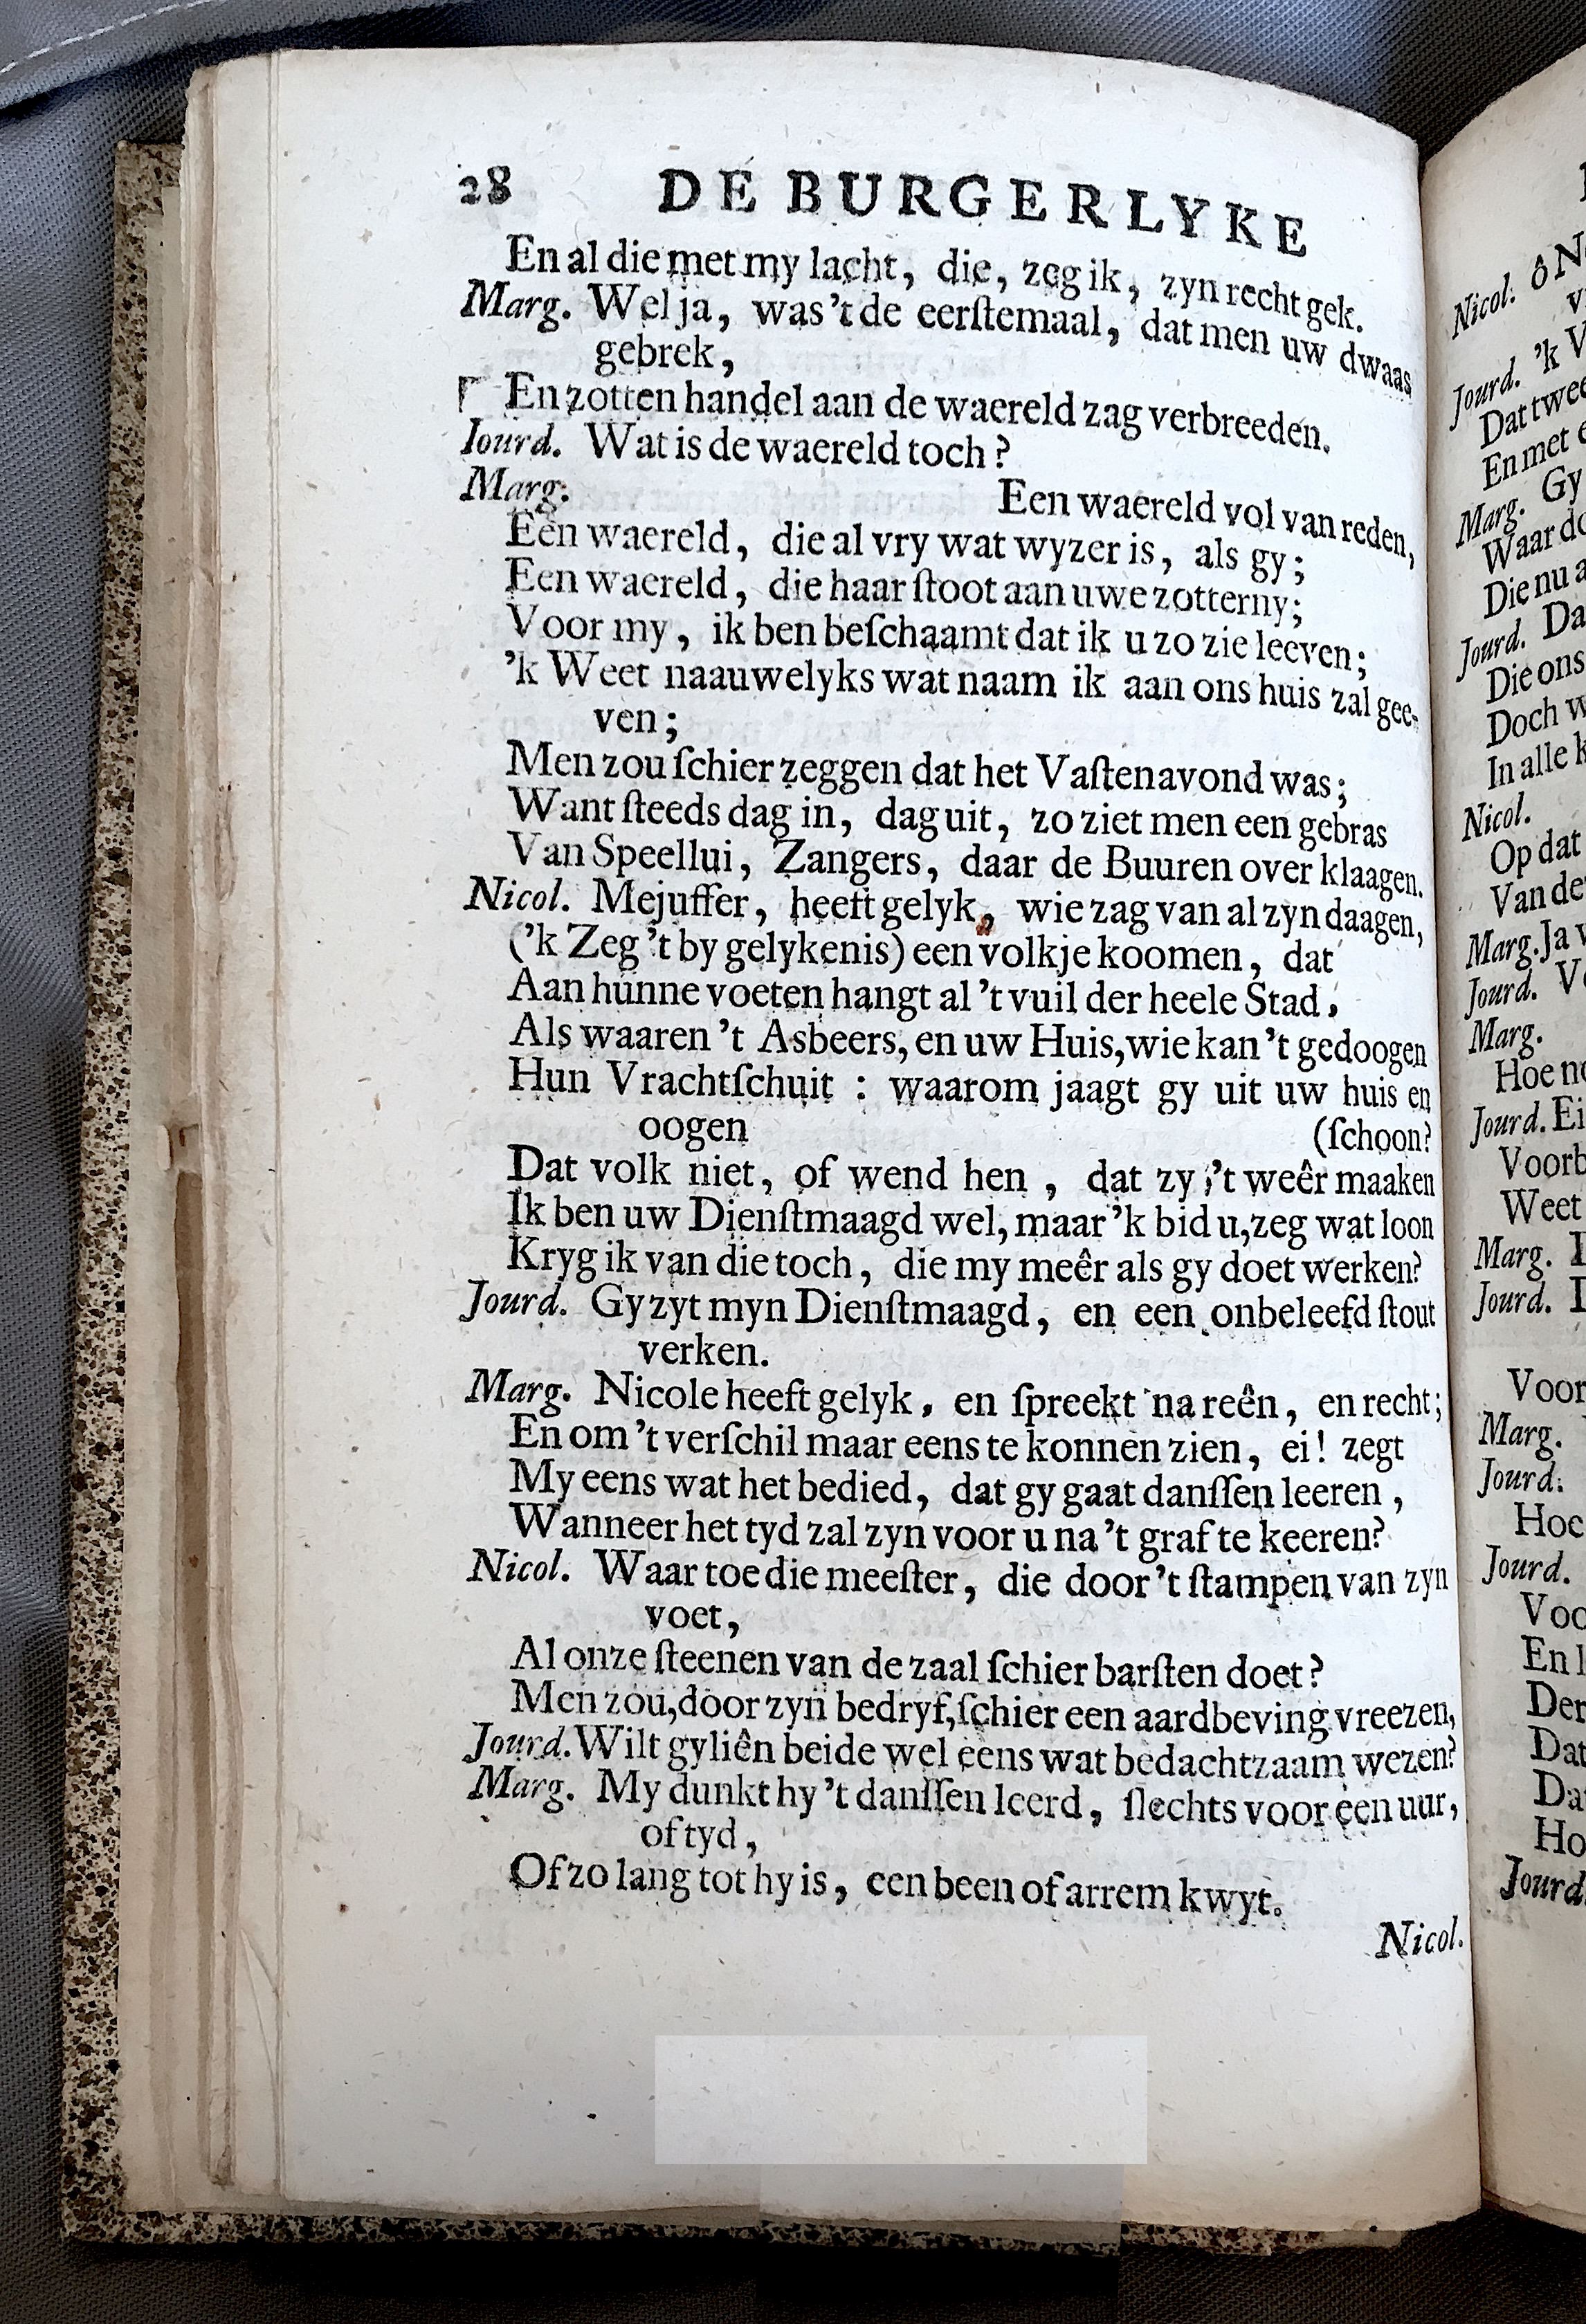 28 DE BURGERLYKE
En al die met my lacht, die, zeg ik, zyn recht gek.
Marg. Wel ja, was 't de eerſtemaal, dat men uw dwaas
gebrek,
En zotten handel aan de waereld zag verbreeden.
Iourd. Wat is de waereld toch?
Marg. Een waereld vol van reden,
Een waereld, die al vry wat wyzer is, als gy;
Een waereld, die haar ſtoot aan uwe zotterny;
Voor my, ik ben beſchaamt dat ik u zo zie leeven;
'k Weet naauwelyks wat naam ik aan ons huis zal gee-
ven;
Men zou ſchier zeggen dat het Vaſtenavond was;
Want ſteeds dag in, dag uit, zo ziet men een gebras
Van Speellui, Zangers, daar de Buuren over klaagen.
Nicol. Mejuffer, heeft gelyk, wie zag van al zyn daagen,
('k Zeg 't by gelykenis) een volkje koomen, dat
Aan hunne voeten hangt al 't vuil der heele Stad,
Als waaren 't Asbeers, en uw Huis, wie kan 't gedoogen
Hun Vrachtſchuit : waarom jaagt gy uit uw huis en
oogen (ſchoon?
Dat volk niet, of wend hen, dat zy 't weêr maaken
Ik ben uw Dienſtmaagd wel, maar 'k bid u, zeg wat loon
Kryg ik van die toch, die my meêr als gy doet werken?
Jourd. Gy zyt myn Dienſtmaagd, en een onbeleefd ſtout
verken.
Marg. Nicole heeft gelyk, en ſpreekt na reên, en recht;
En om 't verſchil maar eens te konnen zien, ei! zegt
My eens wat het bedied, dat gy gaat danſſen leeren,
Wanneer het tyd zal zyn voor u na 't graf te keeren?
Nicol. Waar toe die meeſter, die door 't ſtampen van zyn
voet,
Al onze ſteenen van de zaal ſchier barſten doet?
Men zou, door zyn bedryf, ſchier een aardbeving vreezen,
Jourd. Wilt gyliên beide wel eens wat bedachtzaam wezen?
Marg. My dunkt hy 't danſſen leerd, ſlechts voor een uur,
of tyd,
Of zo lang tot hy is, een been of arrem kwyt.
Nicol.
Nicol. ô
Jourd. 'k
Dat twee
En met
Marg. Gy
Waar
Die nu
Jourd.
Die ons
Doch
In alle
Nicol.
Op dat
Marg. Ja
Jourd.
Marg.
Hoe
Jourd. Ei
Weet
Marg.
Jourd.
Voor
Marg.
Jourd.
Jourd.
Jourd.